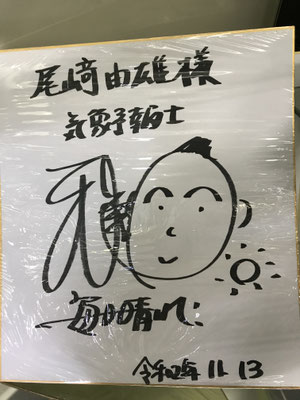 尾﨑由雄様
気象予報士
毎日晴れ
令和2年 11 13